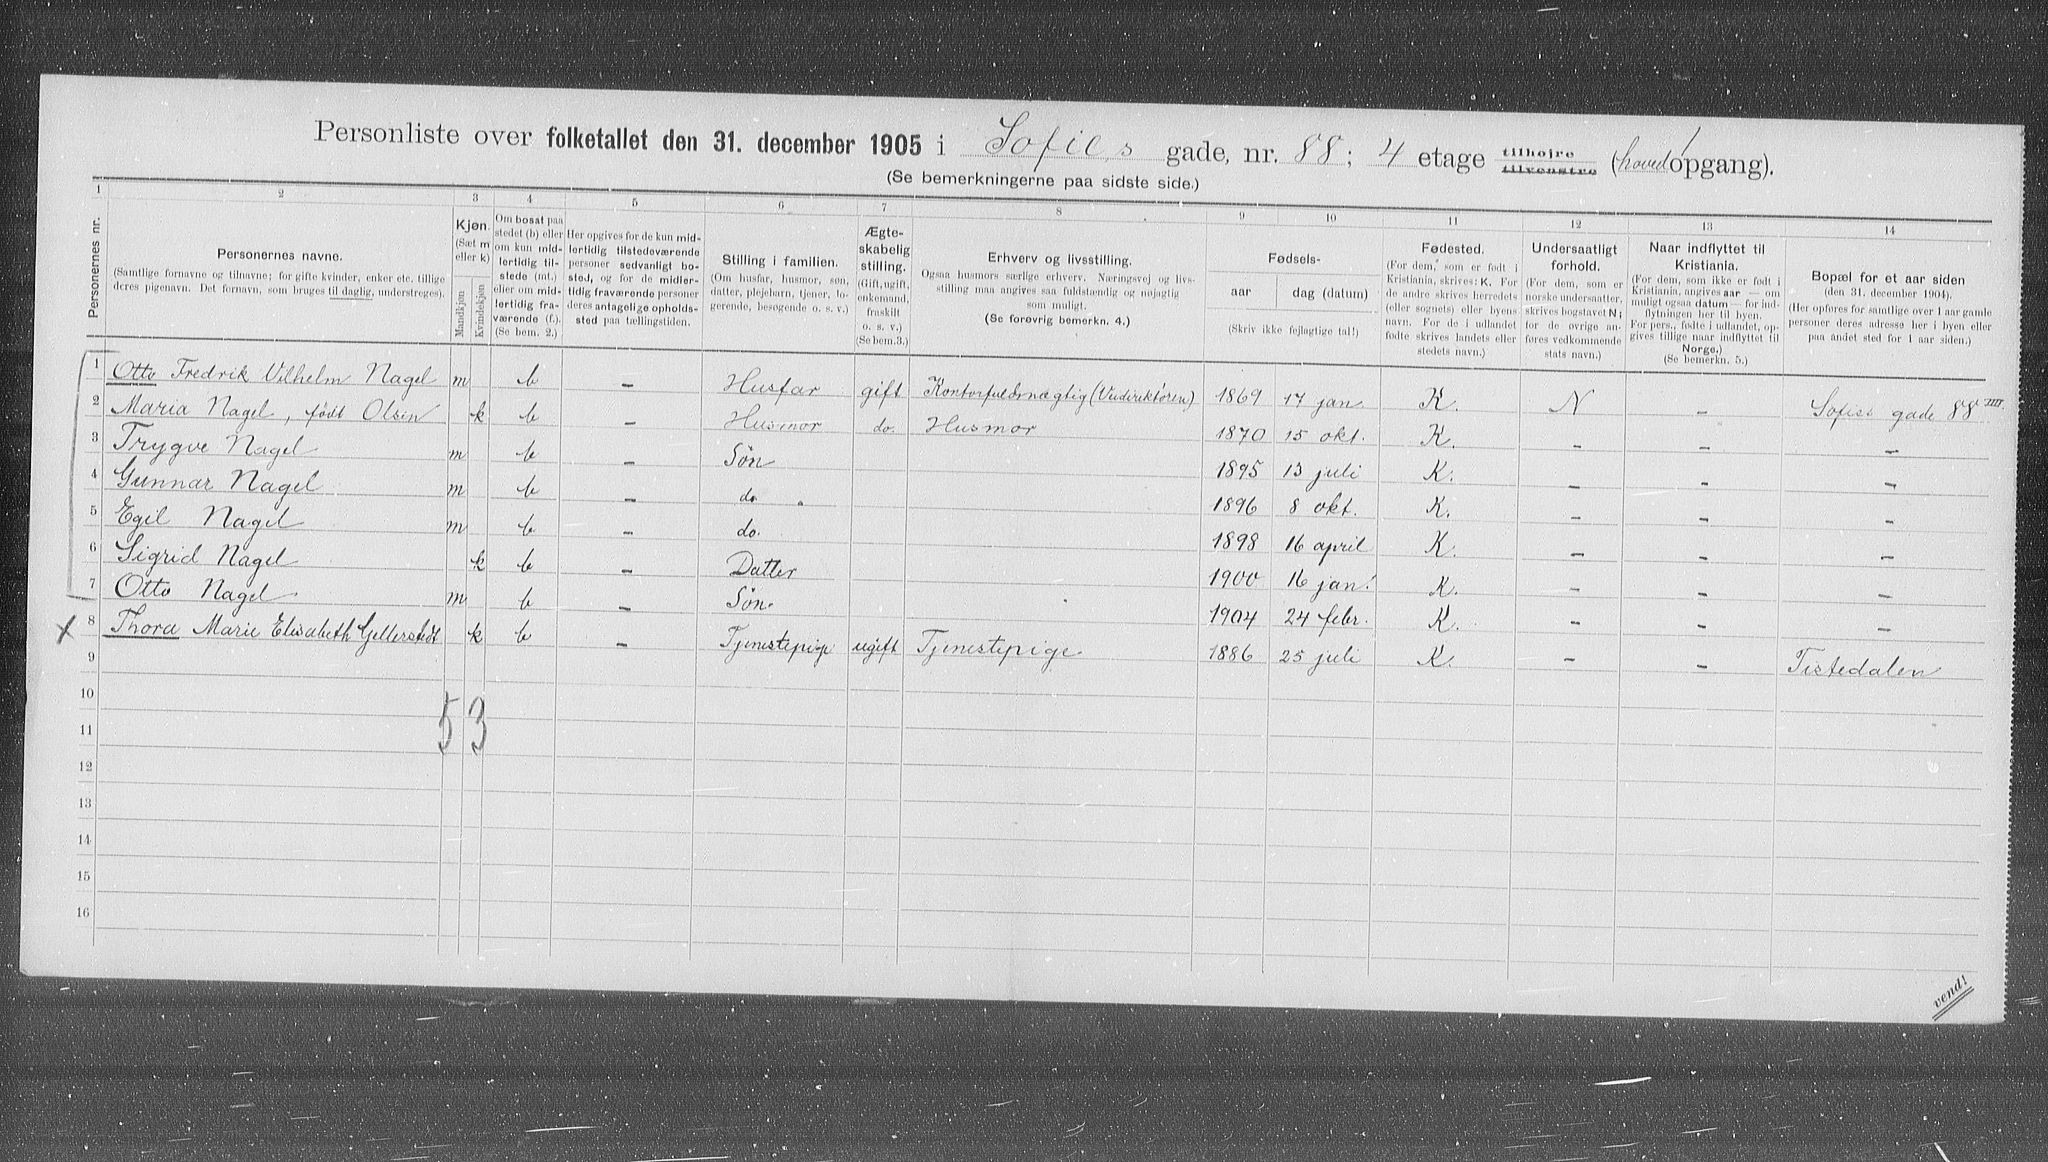 Personliste over folketallet den 31. december 1905 i Sofies gade, nr. 88; 4 etage tilhøjre tilvenstre (hovedopgang).
(Se bemerkningerne paa sidste side.)
1 2 3 4 5 6 7 8 9 10 11 12 13 14
Personernes nr.
Personernes navne.
(Samtlige fornavne og tilnavne; for gifte kvinder, enker etc. tillige
deres pigenavn. Det fornavn, som bruges til daglig, understreges).
Kjøn.
(Sæt m
eller k)
Mandkjøn
Kvindekjøn
Om bosat paa
stedet (b) eller
om kun mid-
lertidig til-
stede (mt.)
eller om mid-
lertidig fra-
værende (f.).
(Se bem. 2.)
Her opgives for de kun mid-
lertidig tilstedeværende
personer sedvanligt bo-
sted, og for de midler-
tidig fraværende personer
deres antagelige opholds-
sted paa tællingstiden.
Stilling i familien.
(Om husfar, husmor, søn,
datter, plejebarn, tjener, lo-
gerende, besøgende o. s. v.)
Ægte-
skabelig
stilling.
(Gift, ugift,
enkemand,
fraskilt
o. s. v.)
(Se bem.3.)
Erhverv og livsstilling.
Ogsaa husmors særlige erhverv. Næringsvej og livs-
stilling maa angives saa fuldstændig og nøjagtig
som muligt.
(Se forøvrig bemerkn. 4.)
Fødsels-
aar
dag (datum)
(Skriv ikke fejlagtige tal!)
Fødested.
(For dem, som er født i
Kristiania, skrives: K. For
de andre skrives herredets
(eller sognets) eller byens
navn. For de i udlandet
fødte skrives landets eller
stedets navn.)
Undersaatligt
forhold.
(For dem, som er
norske undersaatter,
skrives bogstavet N;
for de øvrige an-
føres vedkommende
stats navn.)
Naar indflyttet til
Kristiania.
(For dem, som ikke er født i
Kristiania, angives aar — om
muligt ogsaa datum — for ind-
flytningen her til byen.
For pers., fødte i udlandet, op-
gives tillige naar indflyttet til
Norge.)
(Se bemerkn. 5.)
Bopæl for et aar siden
(den 31. december 1904).
(Her opføres for samtlige over 1 aar gamle
personer deres adresse her i byen eller
paa andet sted for 1 aar siden.)
1 Otto Fredrik Vilhelm Nagel m b - Husfar gift 1869 17 jan. K. N - Sofies gade 88 IIII.
2 Maria Nagel, født Olsen k b - Husmor do. Husmor 1870 15 okt. K. - - -
3 Trygve Nagel m b - Søn 1895 13 juli K. - - -
4 Gunnar Nagel m b - do. 1896 8 okt. K. - - -
5 Egil Nagel m b - do. 1898 16 april K. - - -
6 Sigrid Nagel k b - Datter 1900 16 jan. K. - - -
7 Otto Nagel m b - Søn 1904 24 febr. K. - - -
x 8 Thora Marie Elisabeth Gellerstedt k b - Tjenestepige ugift Tjenestepige 1886 25 juli K. - - Tistedalen
9
10
11 5 3
12
13
14
15
16
vend!